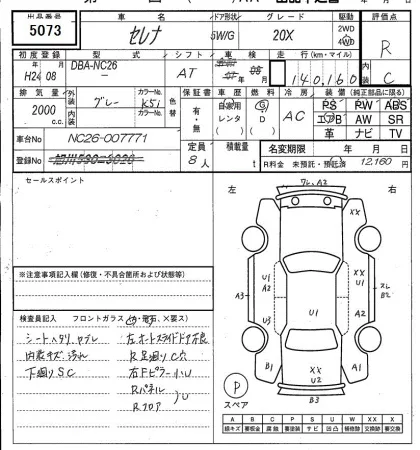 出品番号 車名 ドア形状 グレード 駆動 評価点
5073 セレナ 5W/G 20X 2WD 4WD R
初度登録 型式 シフト 車検 走行(km・マイル) 内装 C
H24 08 DBA-NC26 AT 140,160
排気量 外装 グレー カラーNo. K51 色替 保証書 車歴 燃料 冷房 装備(純正部品に限る)
2000 c.c. 内装 カラーNo. 有・無 自家用 レンタ G D AC PS PW ABS
エアB AW SR
革 ナビ TV
車台No NC26-007771 定員 積載量 名変期限 年 月 日
登録No 8人 t R料金 未預託・預託済 12,160円
セールスポイント
左 右
フレ, A2
XX
U1 A2
A3 U3 U1 スレ B2
B1 XX U2 XX A1
B3
※注意事項記入欄(修復・不具合箇所および状態等)
検査員記入 フロントガラス
シートヘタリ、ヤブレ 左オートスライドドア不良
内装キズ、汚れ R足廻りC穴
下廻りSC 右Fピラー小U
Rパネル
Rフロア U
P
スペア
A B C P S U W X XX
線キズ 要板金 腐蝕 要塗装 サビ 凹凸 補修跡 要交換 交換済